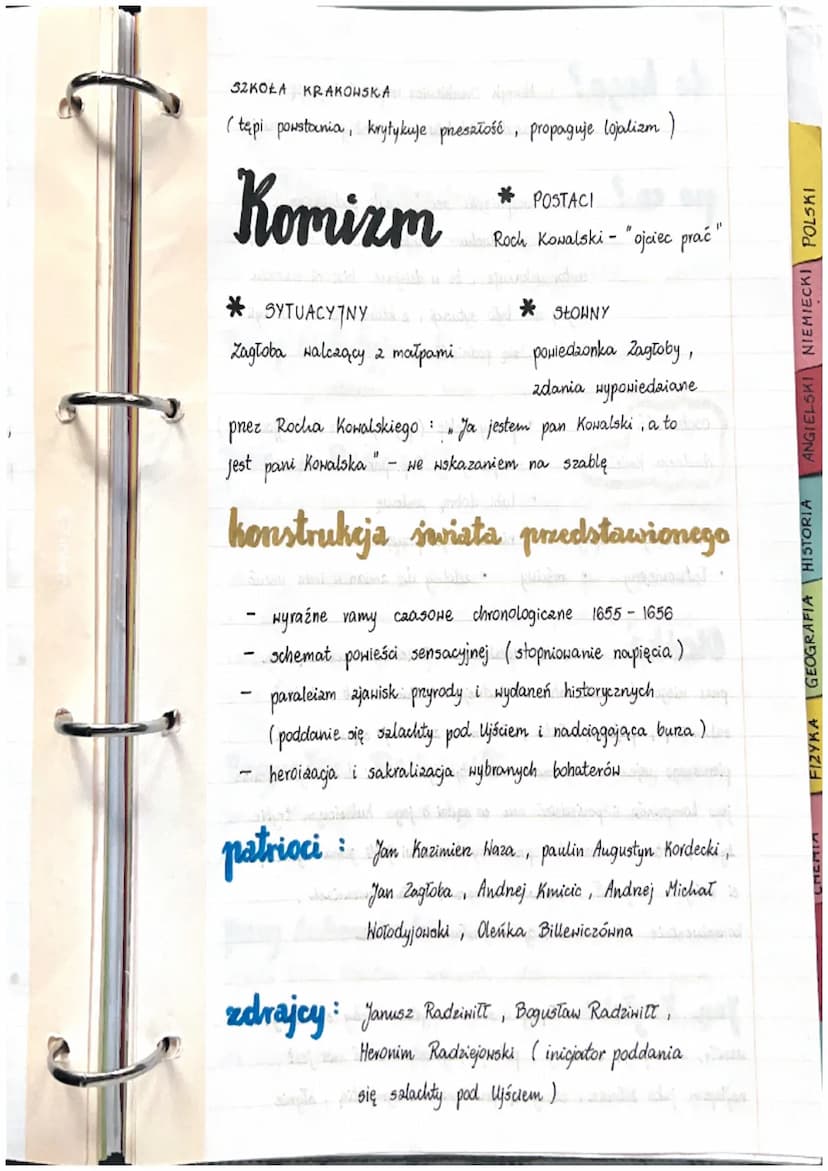 SZKOŁA KRAKOWSKA
(tępi powstania, krytykuje przeszłość, propaguje lojalizm)
Komizm
* POSTACI
Roch Kowalski - "ojciec prać"
* SYTUACYJNY
Zagłoba walczący z małpami
* SŁOWNY
powiedzonka Zagłoby,
zdania wypowiedziane
przez Rocha Kowalskiego: „Ja jestem pan Kowalski, a to
jest pani Kowalska" - ze wskazaniem na szablę
konstrukcja świata przedstawionego
- wyraźne ramy czasowe chronologiczne 1655 - 1656
- schemat powieści sensacyjnej (stopniowanie napięcia)
- paraleizm zjawisk przyrody i wydarzeń historycznych
(poddanie się szlachty pod Ujściem i nadciągająca burza)
- heroizacja i sakralizacja wybranych bohaterów
patrioci: Jan Kazimierz Waza, paulin Augustyn Kordecki,
Jan Zagłoba, Andrzej Kmicic, Andrzej Michał
Wołodyjowski, Oleńka Billewiczówna
zdrajcy: Janusz Radziwiłł, Bogusław Radziwiłł,
Heronim Radziejowski (inicjator poddania
się szlachty pod Ujściem)
POLSKI
NIEMIECKI
ANGIELSKI
HISTORIA
GEOGRAFIA
FIZYKA
CHEMIA